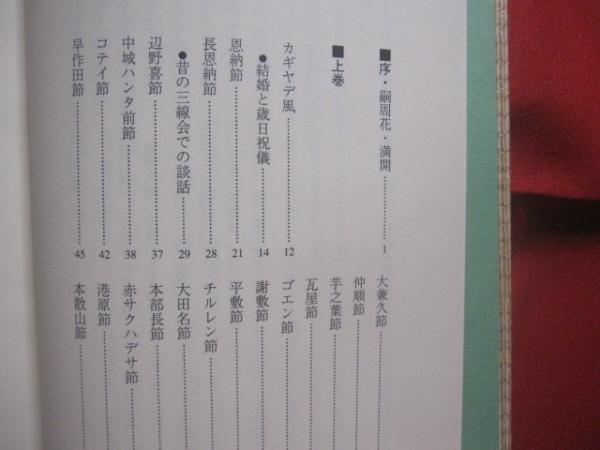 ■序・嗣周花・満開 1
■上巻
カギヤデ風 12
●結婚と歳日祝儀 14
恩納節 21
長恩納節 28
●昔の三線会での談話 29
辺野喜節 37
中城ハンタ前節 38
コテイ節 42
早作田節 45
大兼久節
仲順節
芋之葉節
瓦屋節
ゴエン節
謝敷節
平敷節
チルレン節
大田名節
本部長節
赤サクハデサ節
港原節
本散山節